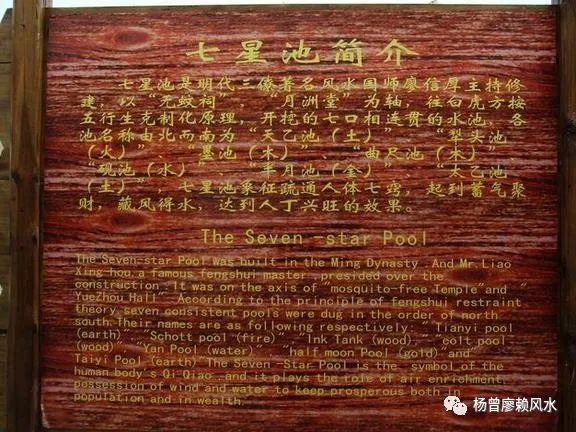 七星池简介
七星池是明代三僚著名风水国师廖信厚主持修
建，以“无蚊祠”、“月洲堂”为轴，往白虎方按
五行生克制化原理，开挖的七口相连贯的水池，各
池名称由北而南为“天乙池（土）”、“犁头池
（火）”、“墨池（木）”、“曲尺池（木）”、
“砚池（水）”、“半月池（金）”、“太乙池
（土）”，七星池象征疏通人体七窍，起到蓄气聚
财，藏风得水，达到人丁兴旺的效果。
The Seven -star Pool
The Seven-star Pool was built in the Ming Dynasty .And Mr.Liao
Xing-hou,a famous fengshui master ,presided over the
construction .It was on the axis of "mosquito-free Temple"and "
YueZhou Hall". According to the principle of fengshui restraint
theory,seven consistent pools were dug in the order of north
south.Their names are as following respectively: "Tianyi pool
(earth)" "Schott pool (fire)" "Ink Tank (wood), "colt pool
(wood)" "Yan Pool (water)," "half moon Pool (gold)"and"
Taiyi Pool (earth)"The Seven -Star Pool is the symbol of the
human body's Qi Qiao ,and it plays the role of air enrichment,
possession of wind and water to keep prosperous both in
population and in wealth.
杨曾廖赖风水